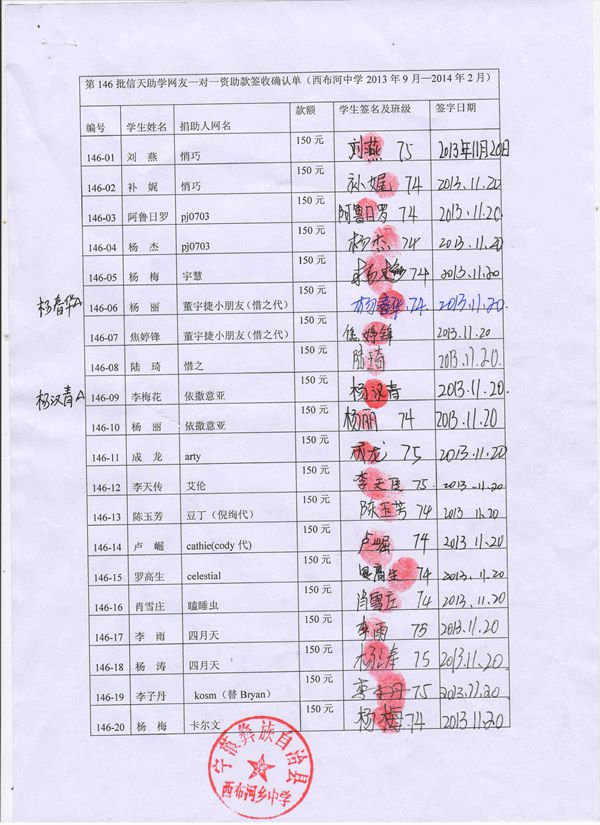 第 146 批信天助学网友一对一资助款签收确认单（西布河中学 2013 年 9 月—2014 年 2 月）
编号 学生姓名 捐助人网名 款额 学生签名及班级 签字日期
146-01 刘 燕 悄巧 150 元 刘燕 75 2013年11月20日
146-02 补 娓 悄巧 150 元 补娓 74 2013.11.20
146-03 阿鲁日罗 pj0703 150 元 阿鲁日罗 74 2013.11.20.
146-04 杨 杰 pj0703 150 元 杨杰 74 2013.11.20
146-05 杨 梅 宇慧 150 元 杨梅 74 2013.11.20
杨春华A 146-06 杨 丽 董宇捷小朋友（惜之代） 150 元 杨春华 74 2013.11.20.
146-07 焦婷锋 董宇捷小朋友（惜之代） 150 元 焦婷锋 2013.11.20
146-08 陆 琦 惜之 150 元 陆琦 2013.11.20.
杨汉青A 146-09 李梅花 依撒意亚 150 元 杨汉青 2013.11.20
146-10 杨 丽 依撒意亚 150 元 杨丽 74 2013.11.20
146-11 成 龙 arty 150 元 成龙 75 2013.11.20
146-12 李天传 艾伦 150 元 李天传 75. 2013.11.20
146-13 陈玉芳 豆丁（倪绚代） 150 元 陈玉芳 74 2013.11.20
146-14 卢 崛 cathie(cody 代) 150 元 卢崛 74 2013.11.20
146-15 罗高生 celestial 150 元 罗高生 74 2013.11.20
146-16 肖雪庄 瞌睡虫 150 元 肖雪庄 74 2013.11.20
146-17 李 雨 四月天 150 元 李雨 75 2013.11.20
146-18 杨 涛 四月天 150 元 杨涛 75 2013.11.20.
146-19 李子丹 kosm（替 Bryan） 150 元 李子丹 75 2013.11.20
146-20 杨 梅 卡尔文 150 元 杨梅 74 2013.11.20
宁蒗彝族自治县
西布河乡中学